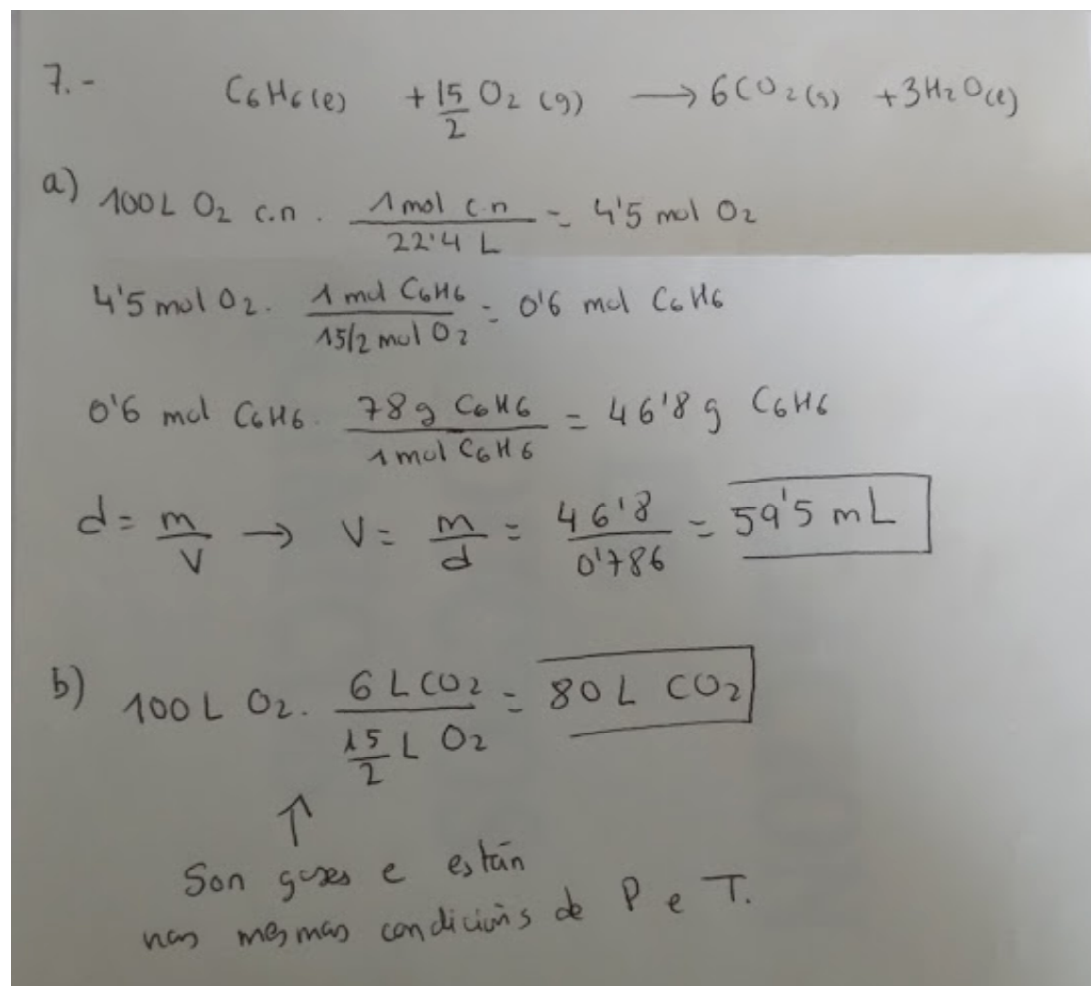 7.- C6H6(l) + 15/2 O2 (g) → 6CO2(g) + 3H2O(l)
a) 100L O2 c.n. · 1 mol c.n / 22'4 L = 4'5 mol O2
4'5 mol O2 · 1 mol C6H6 / 15/2 mol O2 = 0'6 mol C6H6
0'6 mol C6H6 · 78 g C6H6 / 1 mol C6H6 = 46'8 g C6H6
d = m/V → V = m/d = 46'8 / 0'786 = 59'5 mL
b) 100 L O2 · 6 L CO2 / 15/2 L O2 = 80 L CO2
↑
Son gases e están
nas mesmas condicións de P e T.